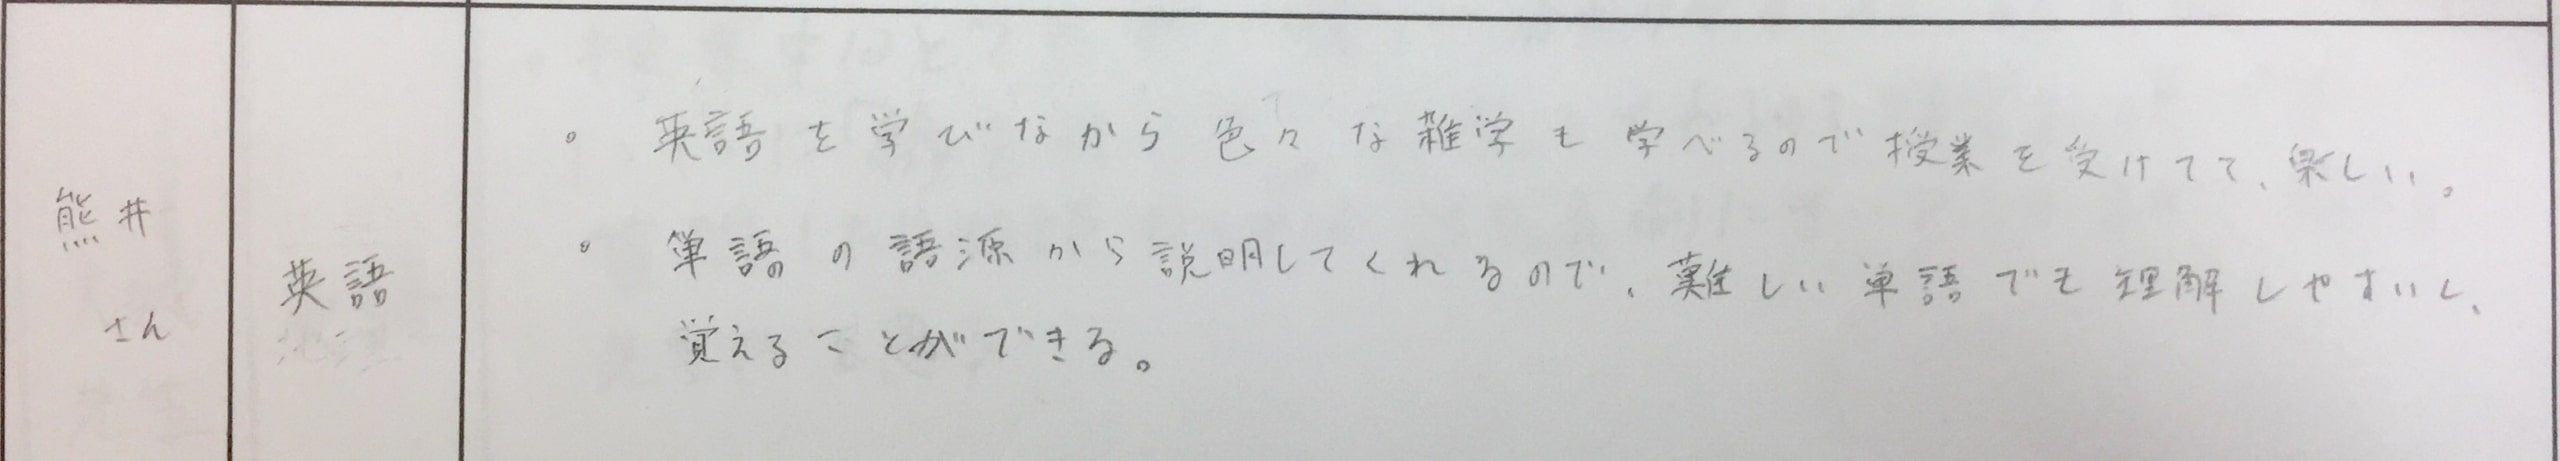 熊井
さん
英語
。英語を学びながら色々な雑学も学べるので授業を受けてて、楽しい。
。単語の語源から説明してくれるので、難しい単語でも理解しやすいし、
覚えることができる。